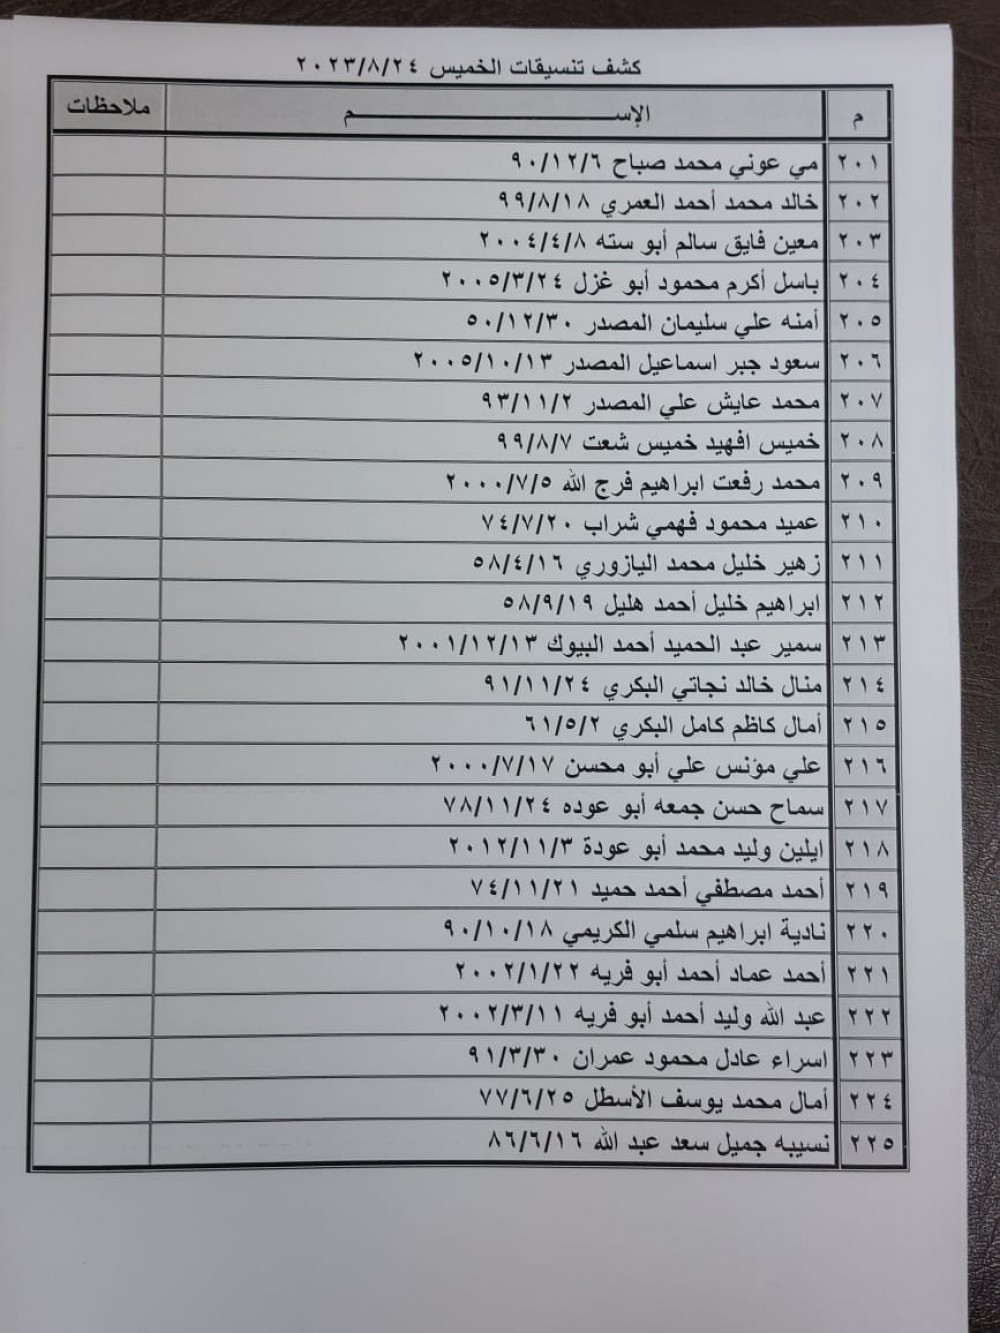 كشف تنسيقات الخميس ٢٠٢٣/٨/٢٤
م الإســـــــــــم ملاحظات
٢٠١ مي عوني محمد صباح ٩٠/١٢/٦
٢٠٢ خالد محمد أحمد العمري ٩٩/٨/١٨
٢٠٣ معين فايق سالم أبو سته ٢٠٠٤/٤/٨
٢٠٤ باسل أكرم محمود أبو غزل ٢٠٠٥/٣/٢٤
٢٠٥ أمنه علي سليمان المصدر ٥٠/١٢/٣٠
٢٠٦ سعود جبر اسماعيل المصدر ٢٠٠٥/١٠/١٣
٢٠٧ محمد عايش علي المصدر ٩٣/١١/٢
٢٠٨ خميس افهيد خميس شعت ٩٩/٨/٧
٢٠٩ محمد رفعت ابراهيم فرج الله ٢٠٠٠/٧/٥
٢١٠ عميد محمود فهمي شراب ٧٤/٧/٢٠
٢١١ زهير خليل محمد اليازوري ٥٨/٤/١٦
٢١٢ ابراهيم خليل أحمد هليل ٥٨/٩/١٩
٢١٣ سمير عبد الحميد أحمد البيوك ٢٠٠١/١٢/١٣
٢١٤ منال خالد نجاتي البكري ٩١/١١/٢٤
٢١٥ أمال كاظم كامل البكري ٦١/٥/٢
٢١٦ علي مؤنس علي أبو محسن ٢٠٠٠/٧/١٧
٢١٧ سماح حسن جمعه أبو عوده ٧٨/١١/٢٤
٢١٨ ايلين وليد محمد أبو عودة ٢٠١٢/١١/٣
٢١٩ أحمد مصطفي أحمد حميد ٧٤/١١/٢١
٢٢٠ نادية ابراهيم سلمي الكريمي ٩٠/١٠/١٨
٢٢١ أحمد عماد أحمد أبو فريه ٢٠٠٢/١/٢٢
٢٢٢ عبد الله وليد أحمد أبو فريه ٢٠٠٢/٣/١١
٢٢٣ اسراء عادل محمود عمران ٩١/٣/٣٠
٢٢٤ أمال محمد يوسف الأسطل ٧٧/٦/٢٥
٢٢٥ نسيبه جميل سعد عبد الله ٨٦/٦/١٦